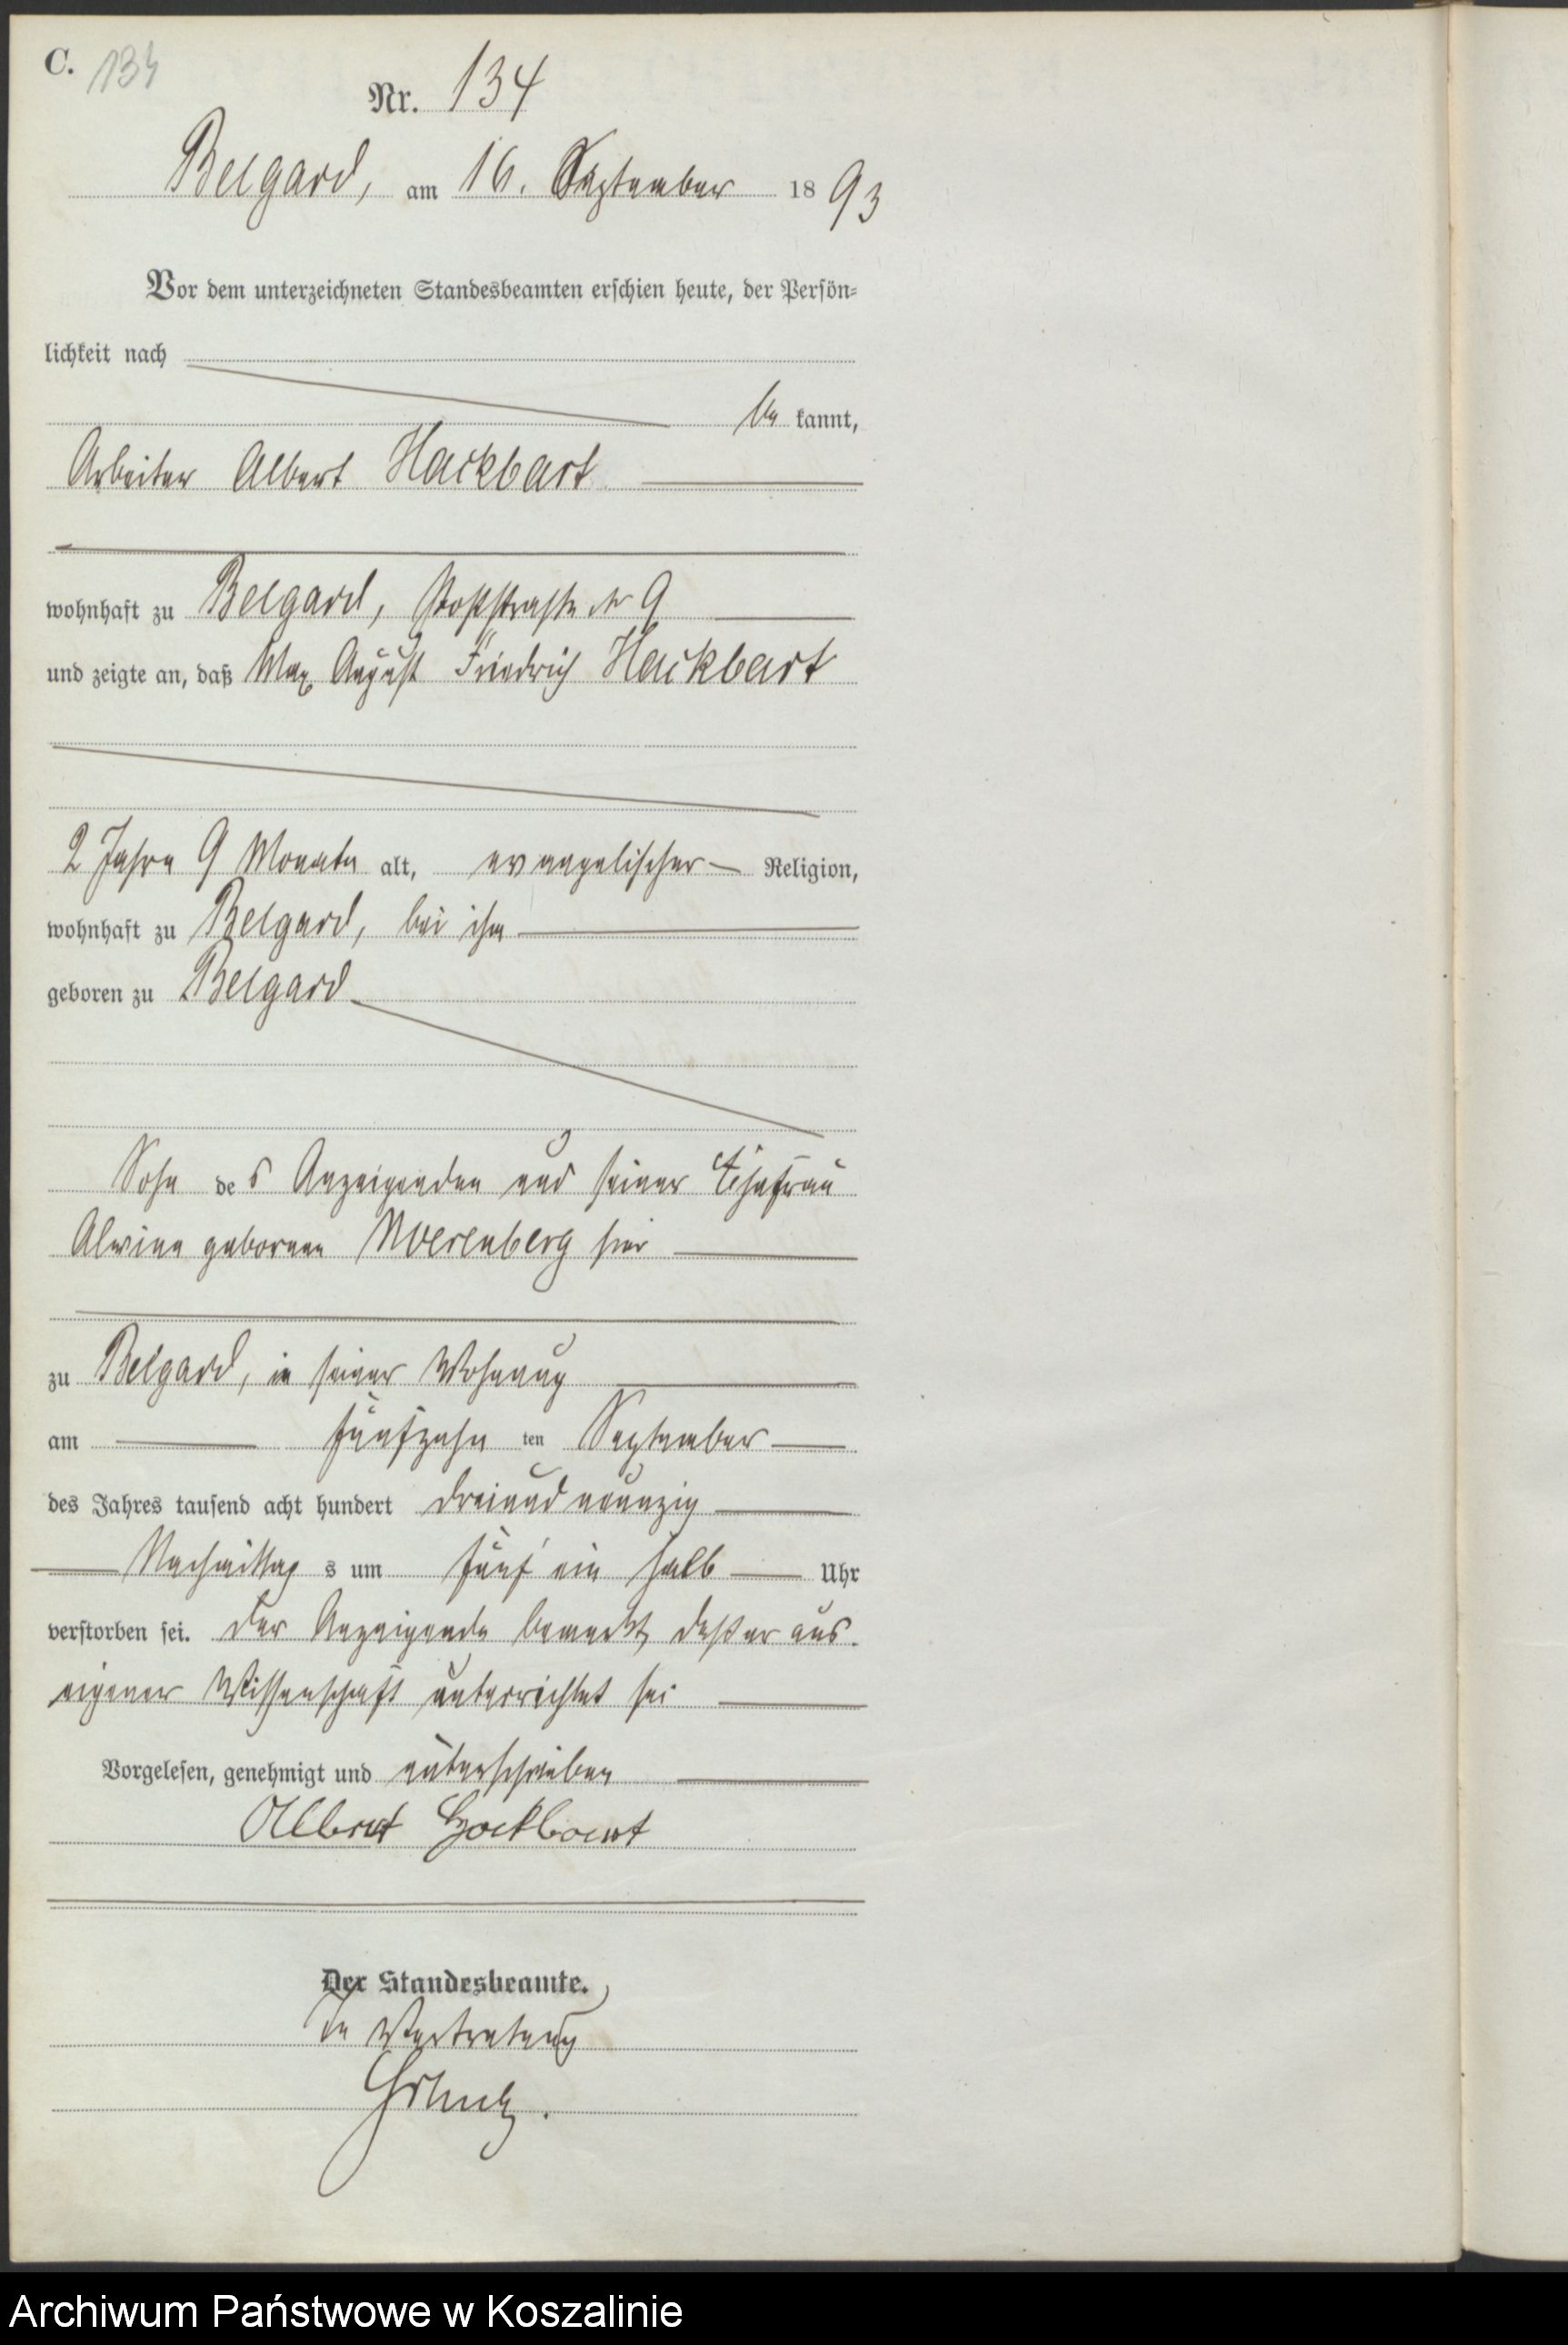 C. 134
Nr. 134
Belgard, am 16. September 1893
Vor dem unterzeichneten Standesbeamten erschien heute, der Persön-
lichkeit nach
be kannt,
Arbeiter Albert Hackbart
wohnhaft zu Belgard, Poststraße Nr 9
und zeigte an, daß Max August Friedrich Hackbart
2 Jahre 9 Monate alt, evangelischer Religion,
wohnhaft zu Belgard, bei ihm
geboren zu Belgard
Sohn des Anzeigenden und seiner Ehefrau
Alwine geborenen hier
zu Belgard, in seiner Wohnung
am fünfzehn ten September
des Jahres tausend acht hundert dreiundneunzig
Nachmittag s um fünf ein halb Uhr
verstorben sei. Der Anzeigende bemerkt, daß er aus
eigener Wissenschaft unterrichtet sei
Vorgelesen, genehmigt und unterschrieben
Albert Hackbart
Der Standesbeamte.
In Vertretung
Archiwum Państwowe w Koszalinie